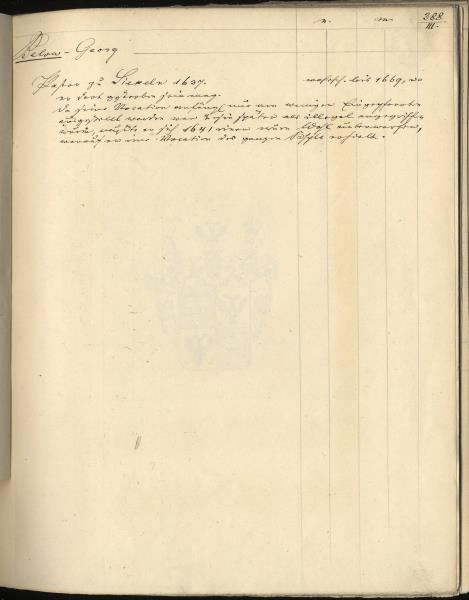 n. m. 388
III.
Below - Georg
Pastor zu Siecken 1637. wahrsch. bis 1669, wo
er dort gestorben sein mag.
Da seine Vocation anfangs nur von wenigen Eingepfarrten
ausgestellt worden war & sie später als illegal angegriffen
wurde, mußte er sich 1641 einer neuen Wahl unterwerfen,
worauf er eine Vocation des ganzen Kirchspiels erhielt.